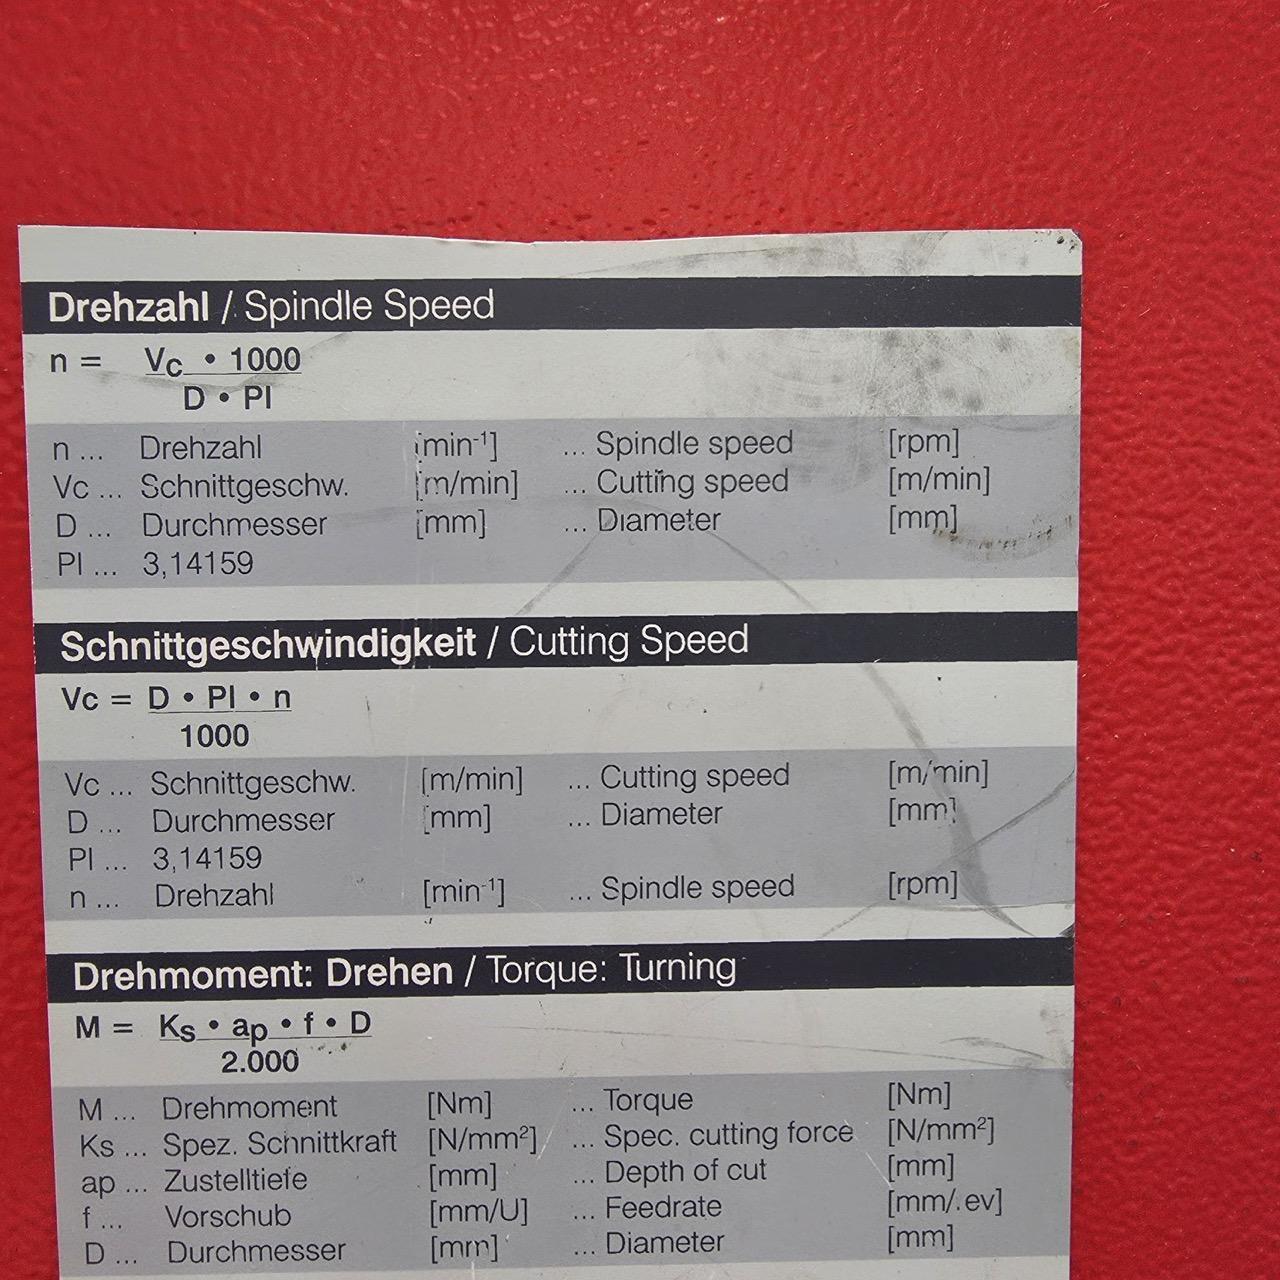 Drehzahl / Spindle Speed
n = Vc • 1000
D • PI
n ... Drehzahl [min-1] ... Spindle speed [rpm]
Vc ... Schnittgeschw. [m/min] ... Cutting speed [m/min]
D ... Durchmesser [mm] ... Diameter [mm]
PI ... 3,14159
Schnittgeschwindigkeit / Cutting Speed
Vc = D • PI • n
1000
Vc ... Schnittgeschw. [m/min] ... Cutting speed [m/min]
D ... Durchmesser [mm] ... Diameter [mm]
PI ... 3,14159
n ... Drehzahl [min-1] ... Spindle speed [rpm]
Drehmoment: Drehen / Torque: Turning
M = Ks • ap • f • D
2.000
M ... Drehmoment [Nm] ... Torque [Nm]
Ks ... Spez. Schnittkraft [N/mm²] ... Spec. cutting force [N/mm²]
ap ... Zustelltiefe [mm] ... Depth of cut [mm]
f ... Vorschub [mm/U] ... Feedrate [mm/rev]
D ... Durchmesser [mm] ... Diameter [mm]